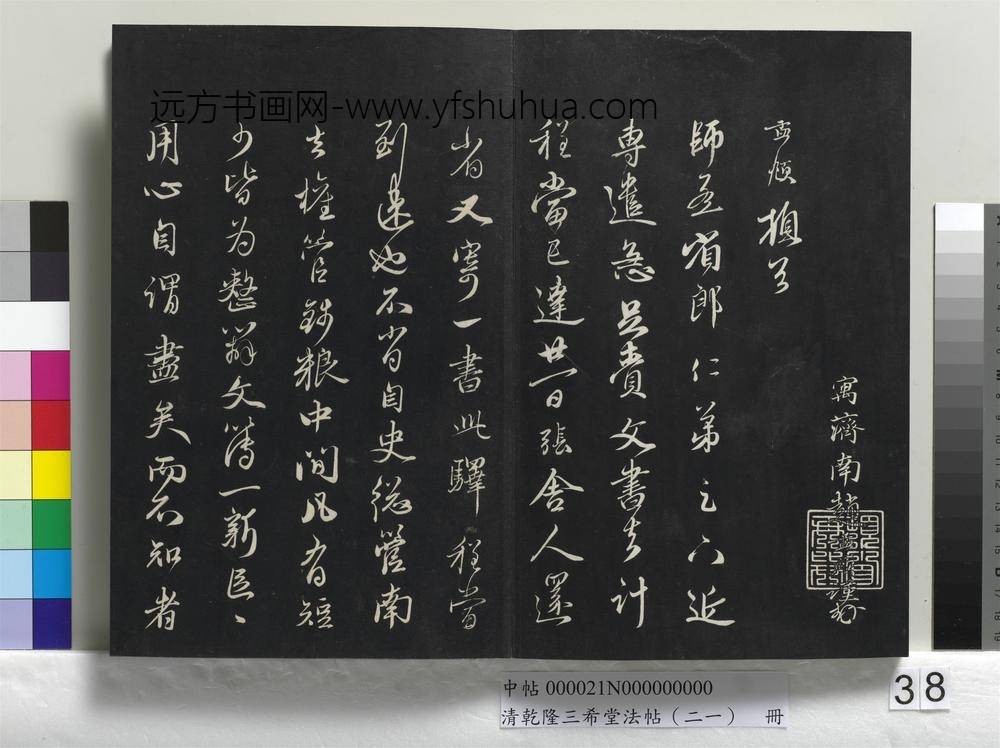 远方书画网-www.yfshuhua.com
寓濟南趙孟頫謹封
孟頫頓首
師孟省郎仁弟足下近
專遣急足賫文書去計
程當已達廿一日張舍人還
省又寄一書此驛程當
到速也不肖自史總管南
去權管錢粮中間凡有短
少皆為整辦文簿一新區〻
用心自謂盡矣而不知者
中帖 000021N000000000
清乾隆三希堂法帖（二一） 冊
38